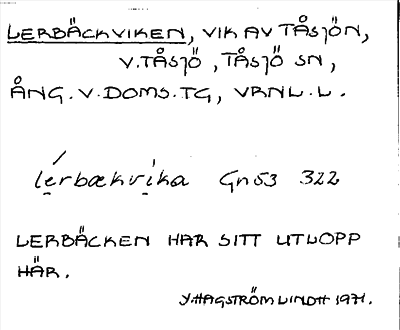 LERBÄCKVIKEN, VIK AV TÅSJÖN,
V. TÅSJÖ, TÅSJÖ SN,
ÅNG. V. DOMS. TG, VRNL. L.
lẹ́rbækvịka Gn53 322
LERBÄCKEN HAR SITT UTLOPP
HÄR.
Y HAGSTRÖM LINDH 1971.